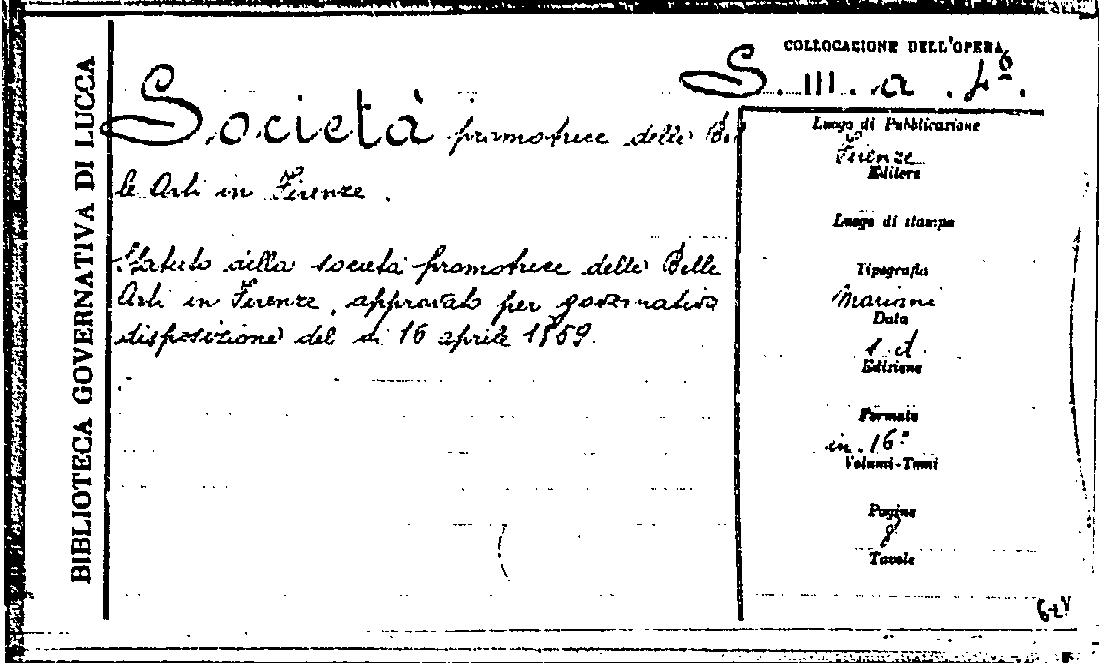 BIBLIOTECA GOVERNATIVA DI LUCCA
COLLOCAZIONE DELL'OPERA
S. III. a.
Società promotrice delle Bel
le Arti in Firenze.
Statuto della società promotrice delle Belle
Arti in Firenze, approvato per governativa
disposizione del dì 16 aprile 1869.
Luogo di Pubblicazione
Firenze
Editore
Luogo di stampa
Tipografia
Mariani
Data
s. d.
Edizione
Formato
in 16°
Volumi-Tomi
Pagine
8
Tavole